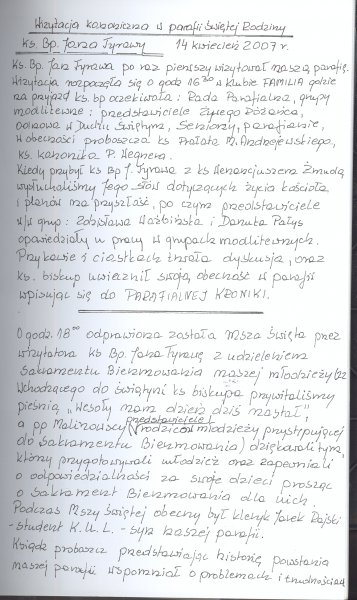 Wizytacja kanoniczna w parafii Świętej Rodziny
ks. Bp. Jana Tyrawy 14 kwiecień 2007 r.
Ks. Bp. Jan Tyrawa po raz pierwszy wizytował naszą parafię.
Wizytacja rozpoczęła się o godz 16³⁰ w klubie FAMILIA gdzie
na przyjazd ks. bp oczekiwała: Rada Parafialna, grupy
modlitewne: przedstawiciele Żywego Różańca,
odnowa w Duchu Świętym, Seniorzy, parafianie,
w obecności proboszcza ks Prałata M. Andrzejewskiego,
ks. kanonika P. Wegnera.
Kiedy przybył ks Bp J. Tyrawa z ks Wenancjuszem Żmudą
wysłuchaliśmy Jego słów dotyczących życia kościoła
i planów na przyszłość, po czym przedstawiciele
w/w grup: Zdzisława Warbińska i Danuta Pałys
opowiedziały o pracy w grupach modlitewnych.
Przy kawie i ciastkach trwała dyskusja, oraz
ks. biskup uwiecznił swoją obecność w parafii
wpisując się do PARAFIALNEJ KRONIKI.
O godz. 18⁰⁰ odprawiona została Msza Święta przez
wizytatora ks Bp. Jana Tyrawę z udzieleniem
Sakramentu Bierzmowania naszej młodzieży (22
Wchodzącego do świątyni ks biskupa przywitaliśmy
pieśnią "Wesoły nam dzień dziś nastał",
a pp Malinowscy (przedstawiciele rodziców młodzieży przystępującej
do Sakramentu Bierzmowania) dziękowali tym,
którzy przygotowywali młodzież oraz zapewniali
o odpowiedzialności za swoje dzieci prosząc
o Sakrament Bierzmowania dla nich.
Podczas Mszy Świętej obecny był kleryk Jarek
- student K.U.L. - syn naszej parafii.
Ksiądz proboszcz przedstawiając historię powstania
naszej parafii wspomniał o problemach i trudnościach